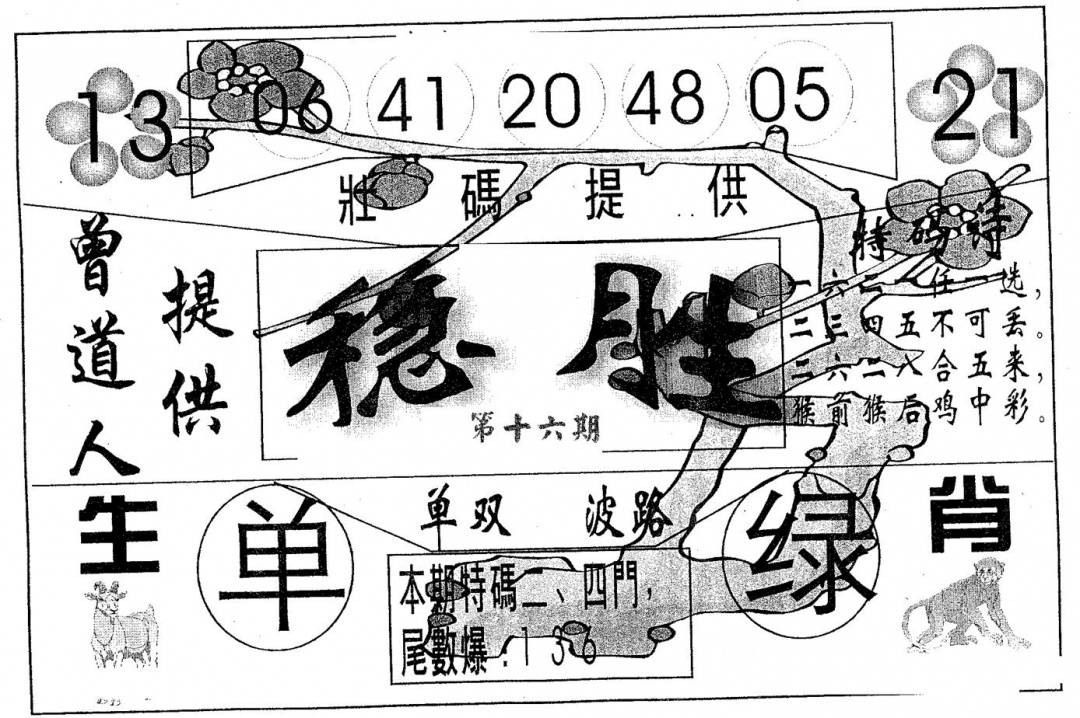 13 06 41 20 48 05 21
壯碼提供
曾道人
提供
稳胜
第十六期
特码诗
一六二一任一选，
二三四五不可丢。
二六二八合五来，
猴前猴后鸡中彩。
生肖
单双 波路
单
绿
本期特碼二、四門，
尾數爆：136